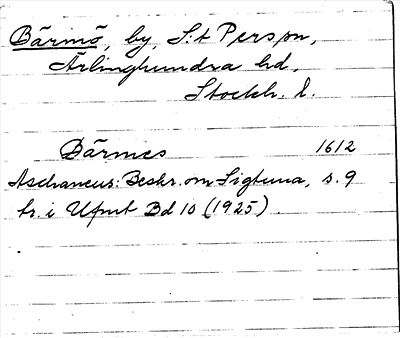 Bärmö, by, S:t Perspn,
Ärlinghundra hd,
Stockh. l.
Bärmes 1612
Aschaneus: Beskr. om Sigtuna, s. 9
tr. i Ufmt Bd 10 (1925).